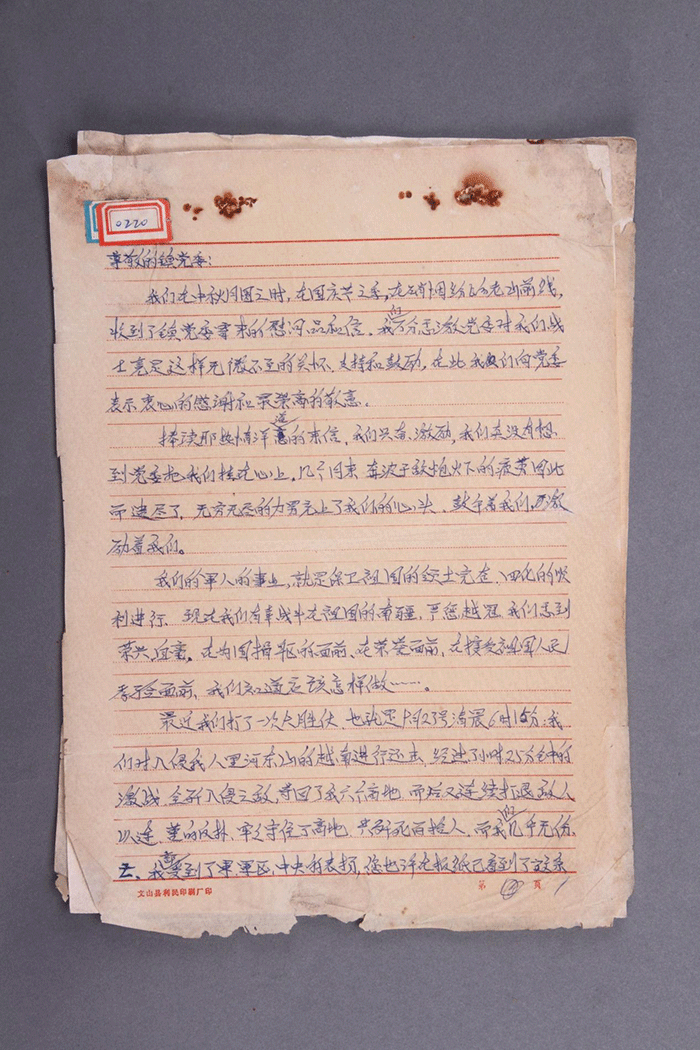 0220
尊敬的镇党委:
我们在中秋月圆之时,在国庆节之季,在 老山前线,
收到了镇党委寄来的慰问品和信。我们万分感激党委对我们战
士 这样无微不至的关怀、支持和鼓励,在此我们向党委
表示衷心的感谢和最崇高的敬意。
捧读那热情洋溢的来信,我们兴奋,激励,我们真没有想
到党委把我们挂在心上。几个月来奔波于敌炮火下的疲劳因此
而速尽了,无穷无尽的力量充上了我们的心头,鼓午着我们,激
励着我们。
我们的军人的事业,就是保卫祖国的 土 在,四化的顺
利进行。现在我们有幸战斗在祖国的南疆,严惩越寇,我们感到
荣兴,自豪。在为国捐躯的面前、在荣誉面前、在接受祖国人民
面前,我们知道应该怎样做……。
最近我们打了一次大胜仗,也就是 月23号清晨6时15分:我
们对入侵我八里河东山的越南进行还击,经过 小时25分钟的
激战,全歼入侵之敌,夺回了我六个高地,而后又连续打退敌人
以连、 的反扑,牢牢守住了高地,共歼 百拾人,而我们几乎无伤
亡、我们受到了军、军区、中央的表扬,您也许在报纸已看到了这系
文山县利民印刷厂印
第 页 1